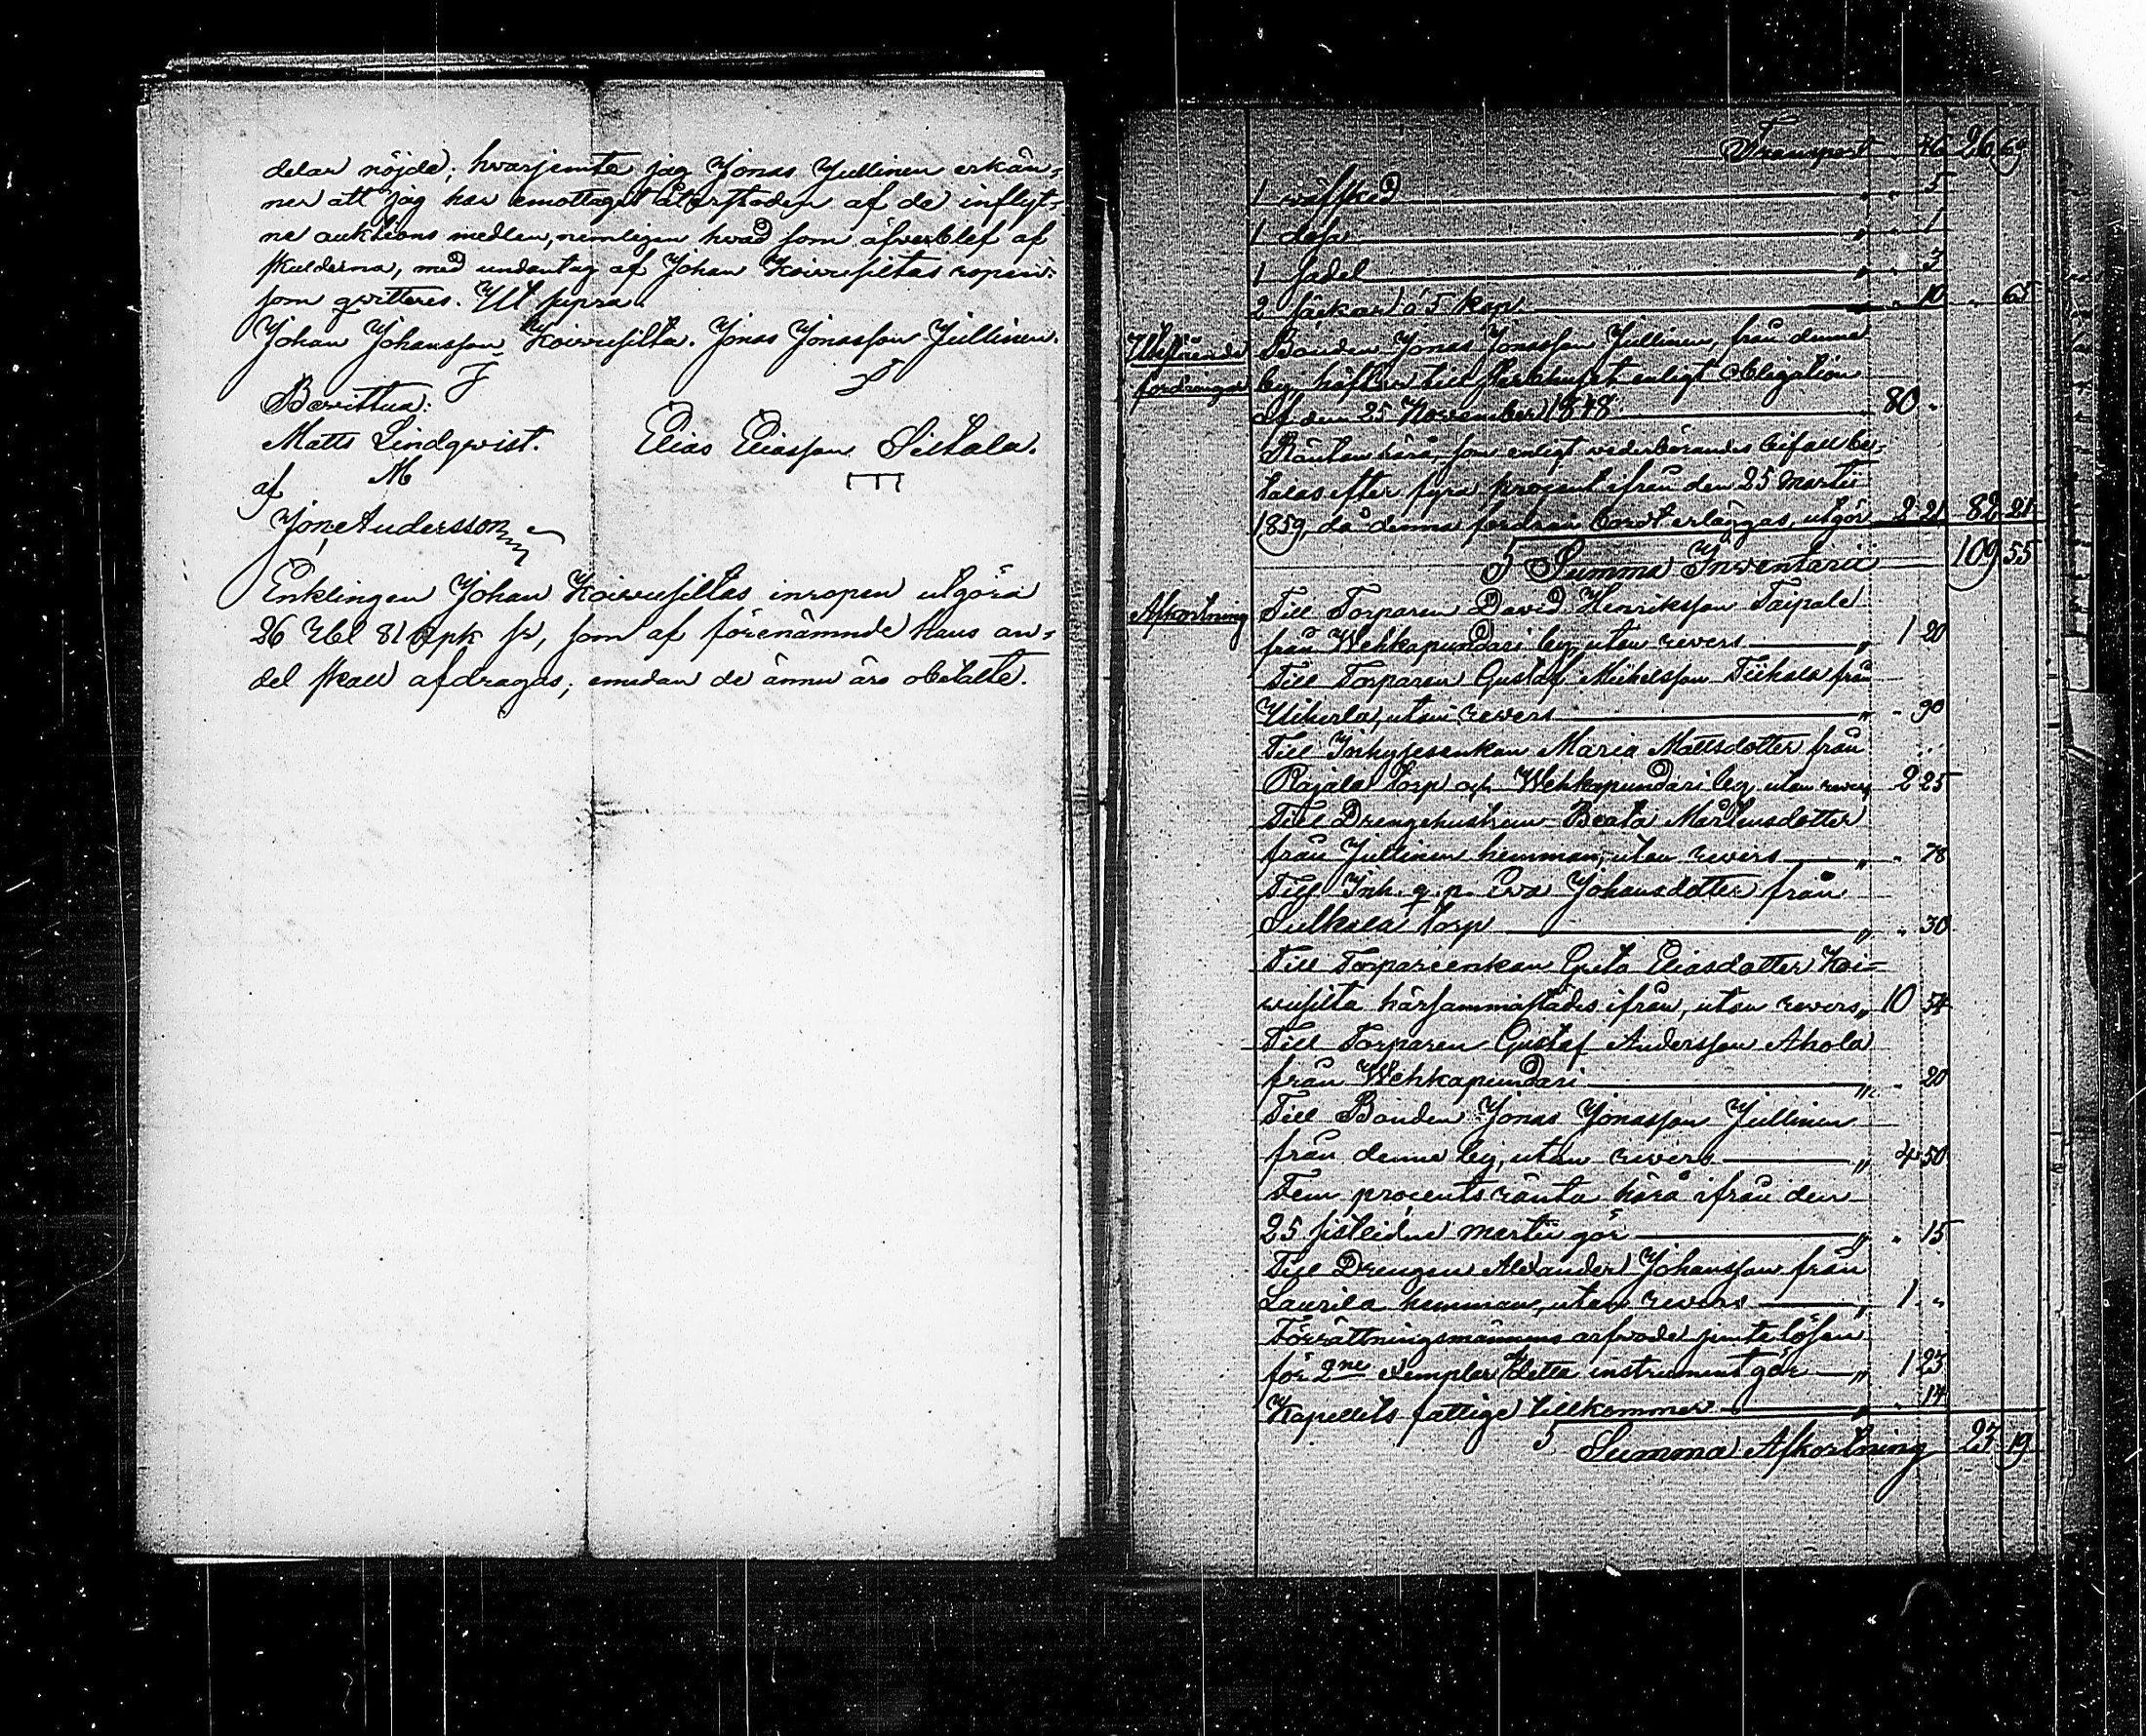 delar nöjde; hvarjemte jag Jonas Jullinen erkän-
ner att jag har emottagit återstoden af de influt-
ne auktions medlen, nemligen hvad som öfverblef af
skulderna, med undantag af Johan Koivusiltas roperi-
som qvitteres. Ut supra
Johan Johansson Koivusilta. Jonas Jonasson Jullinen.
Bevittna:
Matts Lindqvist. Elias Eliasson Siltala.
M
af
Jone Andersson
Enklingen Johan Koivusiltas inropen utgöra
26 Rbl 81 Kpk sr, som af förenämnde hans an-
del skall afdragas; emedan de ännu äro obetalte.
Transport „ 46 26 69
1 wäfsked „ „ 5
1 dosa „ „ 1
1 sadel „ „ 3
2 säckar à 5 kop „ 10 „ 65
Utestående Bonden Jonas Jonasson Jullinen, från denne
fordringar by häftar till sterbhuset enligt Obligation
af den 25 November 1848 80 „
Räntan härå, som enligt wederbörandes bifall be-
talas efter fyra procent ifrån den 25 Martii
1859, då denna fordran bordt erläggas, utgör 2 21 82 21
Summa Inventarii 109 55
Afkortning Till Torparen David Henriksson Taipale
från Wehkapundari by, utan revers „ 1 20
Till Torparen Gustaf Michelsson Tiihala från
utan revers „ „ 90
Till Inhysesenkan Maria Mattsdotter från
Rajala torp och Wehkapundari by utan revers 2 25
Till Drengehustrun Beata Mårtensdotter
från Jullinen hemman, utan revers „ „ 78
Till Inh. q. p. Eva Johansdotter från
torp „ „ 30
Till Torpareenkan Greta Eliasdotter Koi-
wusilta härsammastädes ifrån, utan revers „ 10 54
Till Torparen Gustaf Andersson Ahola
från Wehkapundari „ „ 20
Till Bonden Jonas Jonasson Jullinen
från denne by, utan revers „ 4 50
Fem procents ränta härå ifrån den
25 sistledne martii gör „ „ 15
Till Drengen Alexander Johansson från
Laurila hemman, utan revers „ 1 „
Förrättningsmännens arfvode jemte lösen
för 2ne exemplar af detta instrument gör „ 1 23
Kapellets fattige tillkommer „ „ 14
Summa Afkortning 23 19